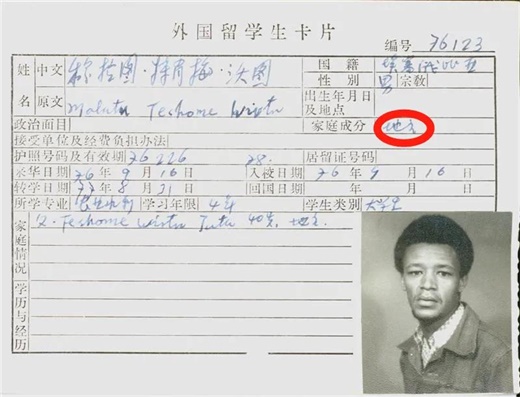 外国留学生卡片
编号 76123
姓 中文 穆拉图·特肖梅·沃图 国籍 埃塞俄比亚
性别 男 宗教
名 原文 Mulatu Teshome Wirtu 出生年月日及地点
政治面目 家庭成分 地主
接受单位及经费负担办法
护照号码及有效期 76226 78. 居留证号码
来华日期 76年9月16日 入校日期 76年9月16日
转学日期 77年8月31日 回国日期 年 月 日
所学专业 学习年限 4年 学生类别 大学生
家庭情况 父. Teshome Wirtu Tutu 40岁, 地主.
学历与经历